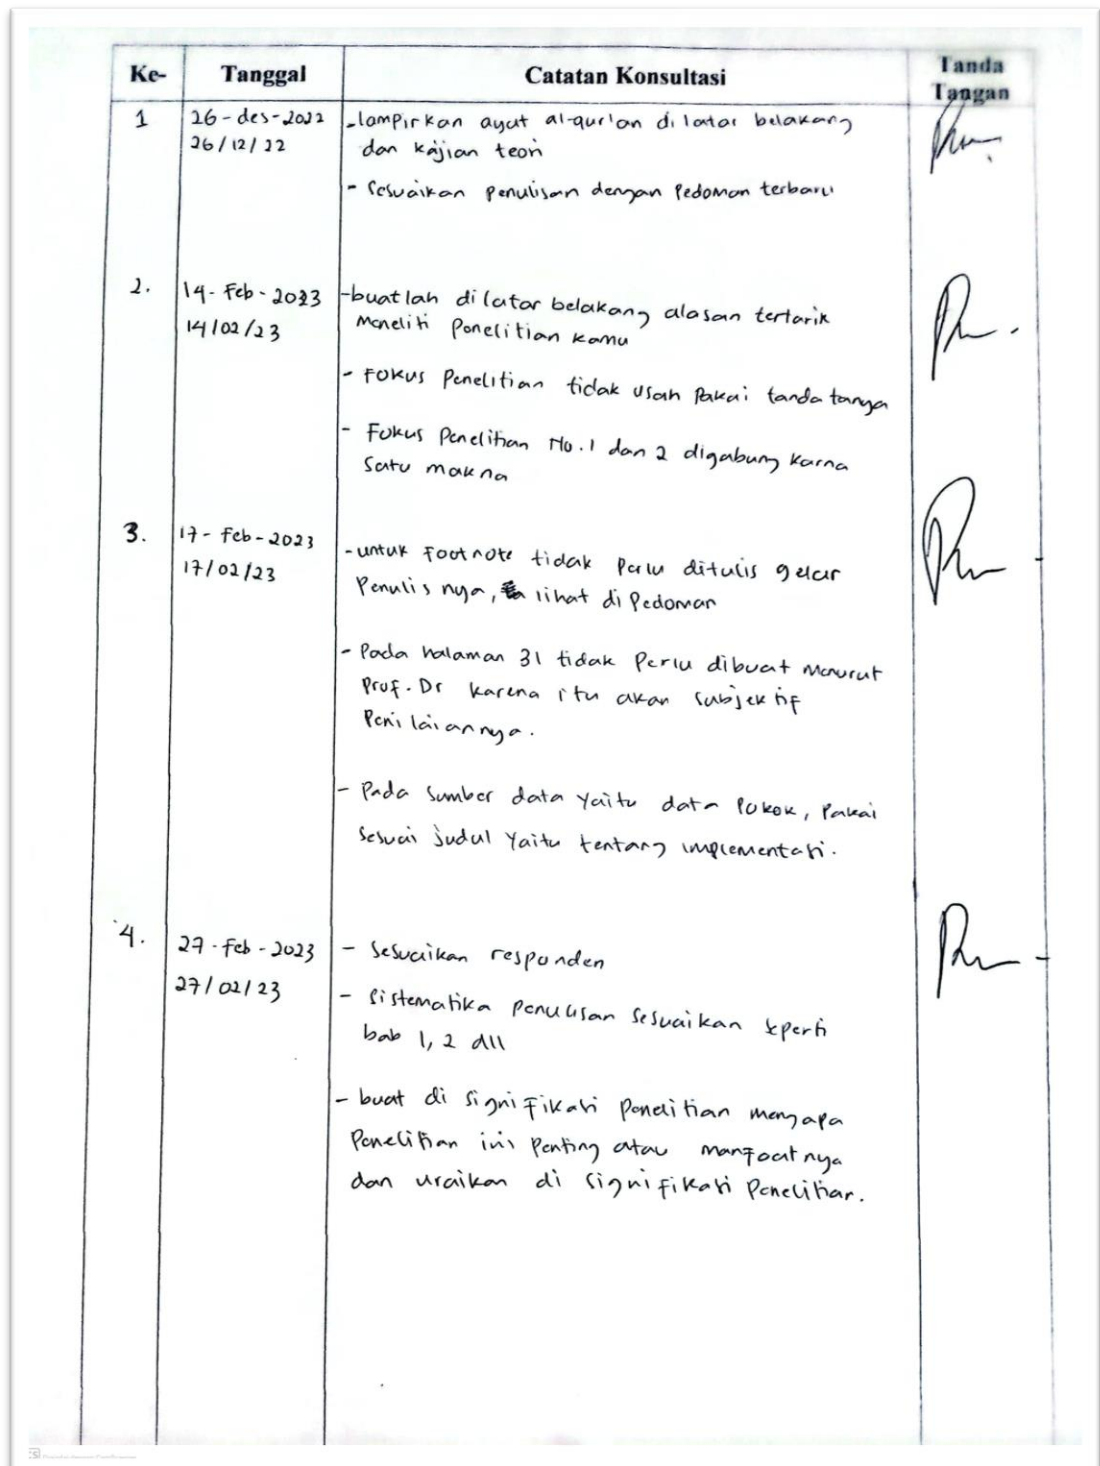 Ke- Tanggal Catatan Konsultasi Tanda Tangan
1 26-des-2022 - lampirkan ayat al-qur'an di latar belakang
26/12/22 dan kajian teori
- Sesuaikan penulisan dengan Pedoman terbaru
2. 14-Feb-2023 - buatlah di latar belakang alasan tertarik
14/02/23 Meneliti Penelitian kamu
- Fokus Penelitian tidak usah Pakai tanda tanya
- Fokus Penelitian No.1 dan 2 digabung karna
Satu makna
3. 17-Feb-2023 - untuk Footnote tidak Perlu ditulis gelar
17/02/23 Penulis nya, lihat di Pedoman
- Pada halaman 31 tidak Perlu dibuat Menurut
Prof. Dr karena itu akan Subjektif
Penilaiannya.
- Pada Sumber data yaitu data Pokok, Pakai
Sesuai judul Yaitu tentang implementasi.
4. 27-Feb-2023 - Sesuaikan responden
27/02/23 - Sistematika penulisan Sesuaikan seperti
bab 1, 2 dll
- buat di Signifikasi Penelitian mengapa
Penelitian ini Penting atau manfaat nya
dan uraikan di Signifikasi Penelitian.